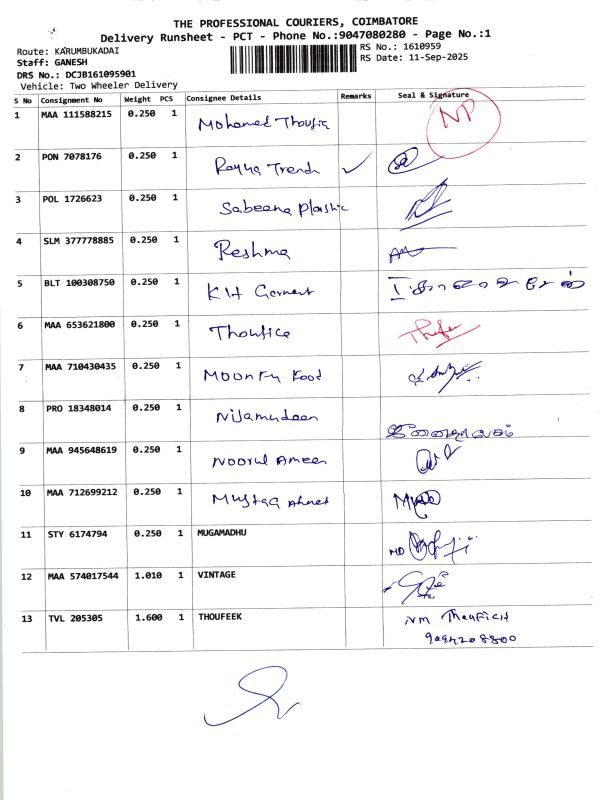 THE PROFESSIONAL COURIERS, COIMBATORE
Delivery Runsheet - PCT - Phone No.:9047080280 - Page No.:1
Route: KARUMBUKADAI
RS No.: 1610959
Staff: GANESH
RS Date: 11-Sep-2025
DRS No.: DCJB161095901
Vehicle: Two Wheeler Delivery
S No Consignment No Weight PCS Consignee Details Remarks Seal & Signature
1 MAA 111588215 0.250 1 Mohamed Thoufiq NP
2 PON 7078176 0.250 1 Rayya Trends ✓
3 POL 1726623 0.250 1 Sabeena Plastic
4 SLM 377778885 0.250 1 Reshma
5 BLT 100308750 0.250 1 KIH Garment
6 MAA 653621800 0.250 1 Thoufice
7 MAA 710430435 0.250 1 Food
8 PRO 18348014 0.250 1 Nijamudeen
9 MAA 945648619 0.250 1 Noorul Ameen
10 MAA 712699212 0.250 1 Mustaq Ahmet
11 STY 6174794 0.250 1 MUGAMADHU MD
12 MAA 574017544 1.010 1 VINTAGE
13 TVL 205305 1.600 1 THOUFEEK NM Thoufich
9094208800